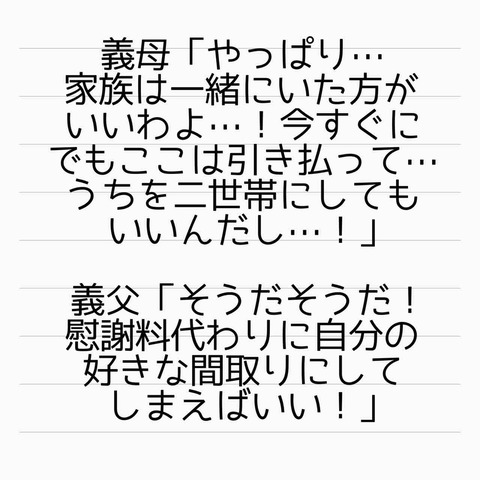 義母「やっぱり…
家族は一緒にいた方が
いいわよ…！今すぐに
でもここは引き払って…
うちを二世帯にしても
いいんだし…！」
義父「そうだそうだ！
慰謝料代わりに自分の
好きな間取りにして
しまえばいい！」